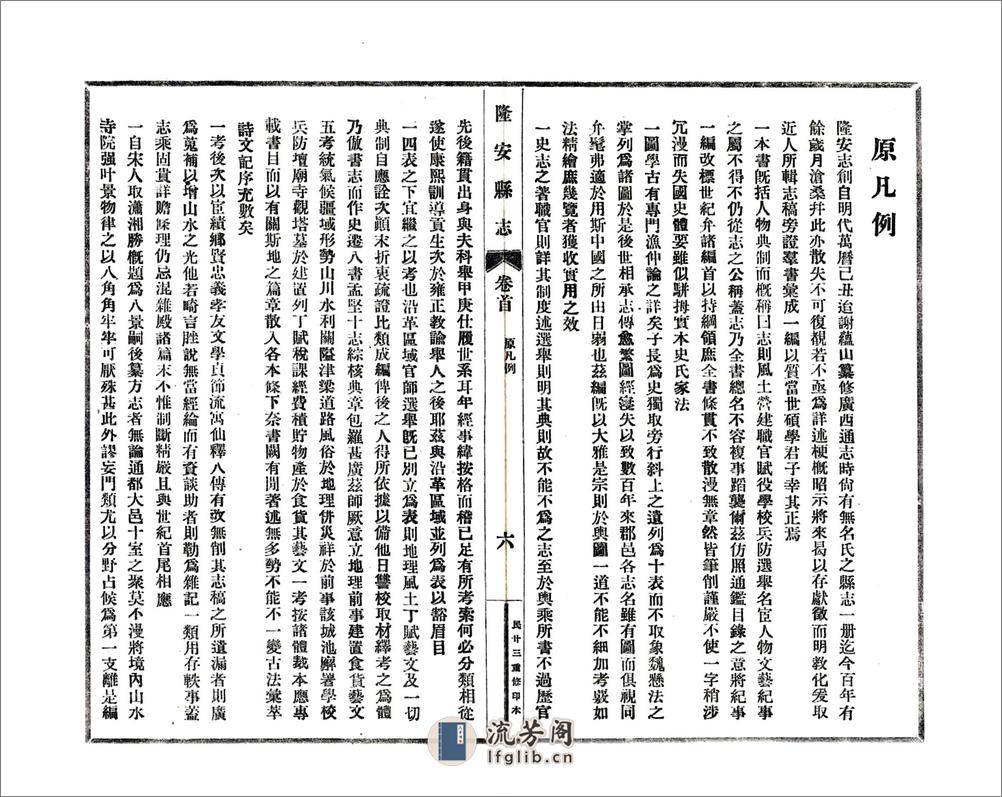 原凡例
隆安志創自明代萬曆己丑迨謝蘊山纂修廣西通志時尙有無名氏之縣志一册迄今百年有
餘歲月滄桑幷此亦散失不可復覩若不亟爲詳述梗槪昭示將來曷以存獻徵而明敎化爰取
近人所輯志稿旁證羣書彙成一編以質當世碩學君子幸其正焉
一本書旣括人物典制而槪稱曰志則風土營建職官賦役學校兵防選舉名宦人物文藝紀事
之屬不得不仍從志之公稱蓋志乃全書總名不容複事蹈襲爾茲仿照通鑑目錄之意將紀事
一編改標世紀弁諸編首以持綱領庶全書條貫不致散漫無章然皆筆削謹嚴不使一字稍涉
冗漫而失國史體要雖似騈拇實本史氏家法
一圖學古有專門漁仲論之詳矣子長爲史獨取旁行斜上之遺列爲十表而不取象魏懸法之
掌列爲諸圖於是後世相承志傳愈繁圖經寖失以致數百年來郡邑各志名雖有圖而俱視同
弁髦弗適於用斯中國之所出日弱也茲編旣以大雅是宗則於輿圖一道不能不細加考覈如
法精繪庶幾覽者獲收實用之效
一史志之著職官則詳其制度述選舉則明其典則故不能不爲之志至於輿乘所書不過歷官
隆安縣志
卷首
原凡例
六
民廿三重修印本
先後籍貫出身與夫科舉甲庚仕履世系耳年經事緯按格而稽已足有所考索何必分類相從
遂使康熙訓導貢生次於雍正敎諭舉人之後耶茲與沿革區域並列爲表以豁眉目
一四表之下宜繼之以考也沿革區域官師選舉旣已別立爲表則地理風土丁賦藝文及一切
典制自應詮次顚末折衷疏證比類成編俾後之人得所依據以備他日讐校取材繹考之爲體
乃倣書志而作史遷八書孟堅十志綜核典章包羅甚廣茲師厥意立地理前事建置食貨藝文
五考統氣候疆域形勢山川水利關隘津梁道路風俗於地理併災祥於前事該城池廨署學校
兵防壇廟寺觀塔墓於建置列丁賦稅課經費積貯物產於食貨其藝文一考按諸體裁本應專
載書目而以有關斯地之篇章散入各本條下奈書闕有間著述無多勢不能不一變古法彙萃
詩文記序充數矣
一考後次以宦績鄉賢忠義孝友文學貞節流寓仙釋八傳有攷無削其志稿之所遺漏者則廣
爲蒐補以增山水之光他若畸言脞說無當經綸而有資談助者則勒爲雜記一類用存軼事蓋
志乘固貴詳贍條理仍忌混雜殿諸篇末不惟制斷精嚴且與世紀首尾相應
一自宋人取瀟湘勝槪題爲八景嗣後纂方志者無論通都大邑十室之聚莫不漫將境內山水
寺院强叶景物律之以八角角牢牢可厭殊甚此外謬妄門類尤以分野占候爲第一支離是編
流芳阁
lfglib.cn